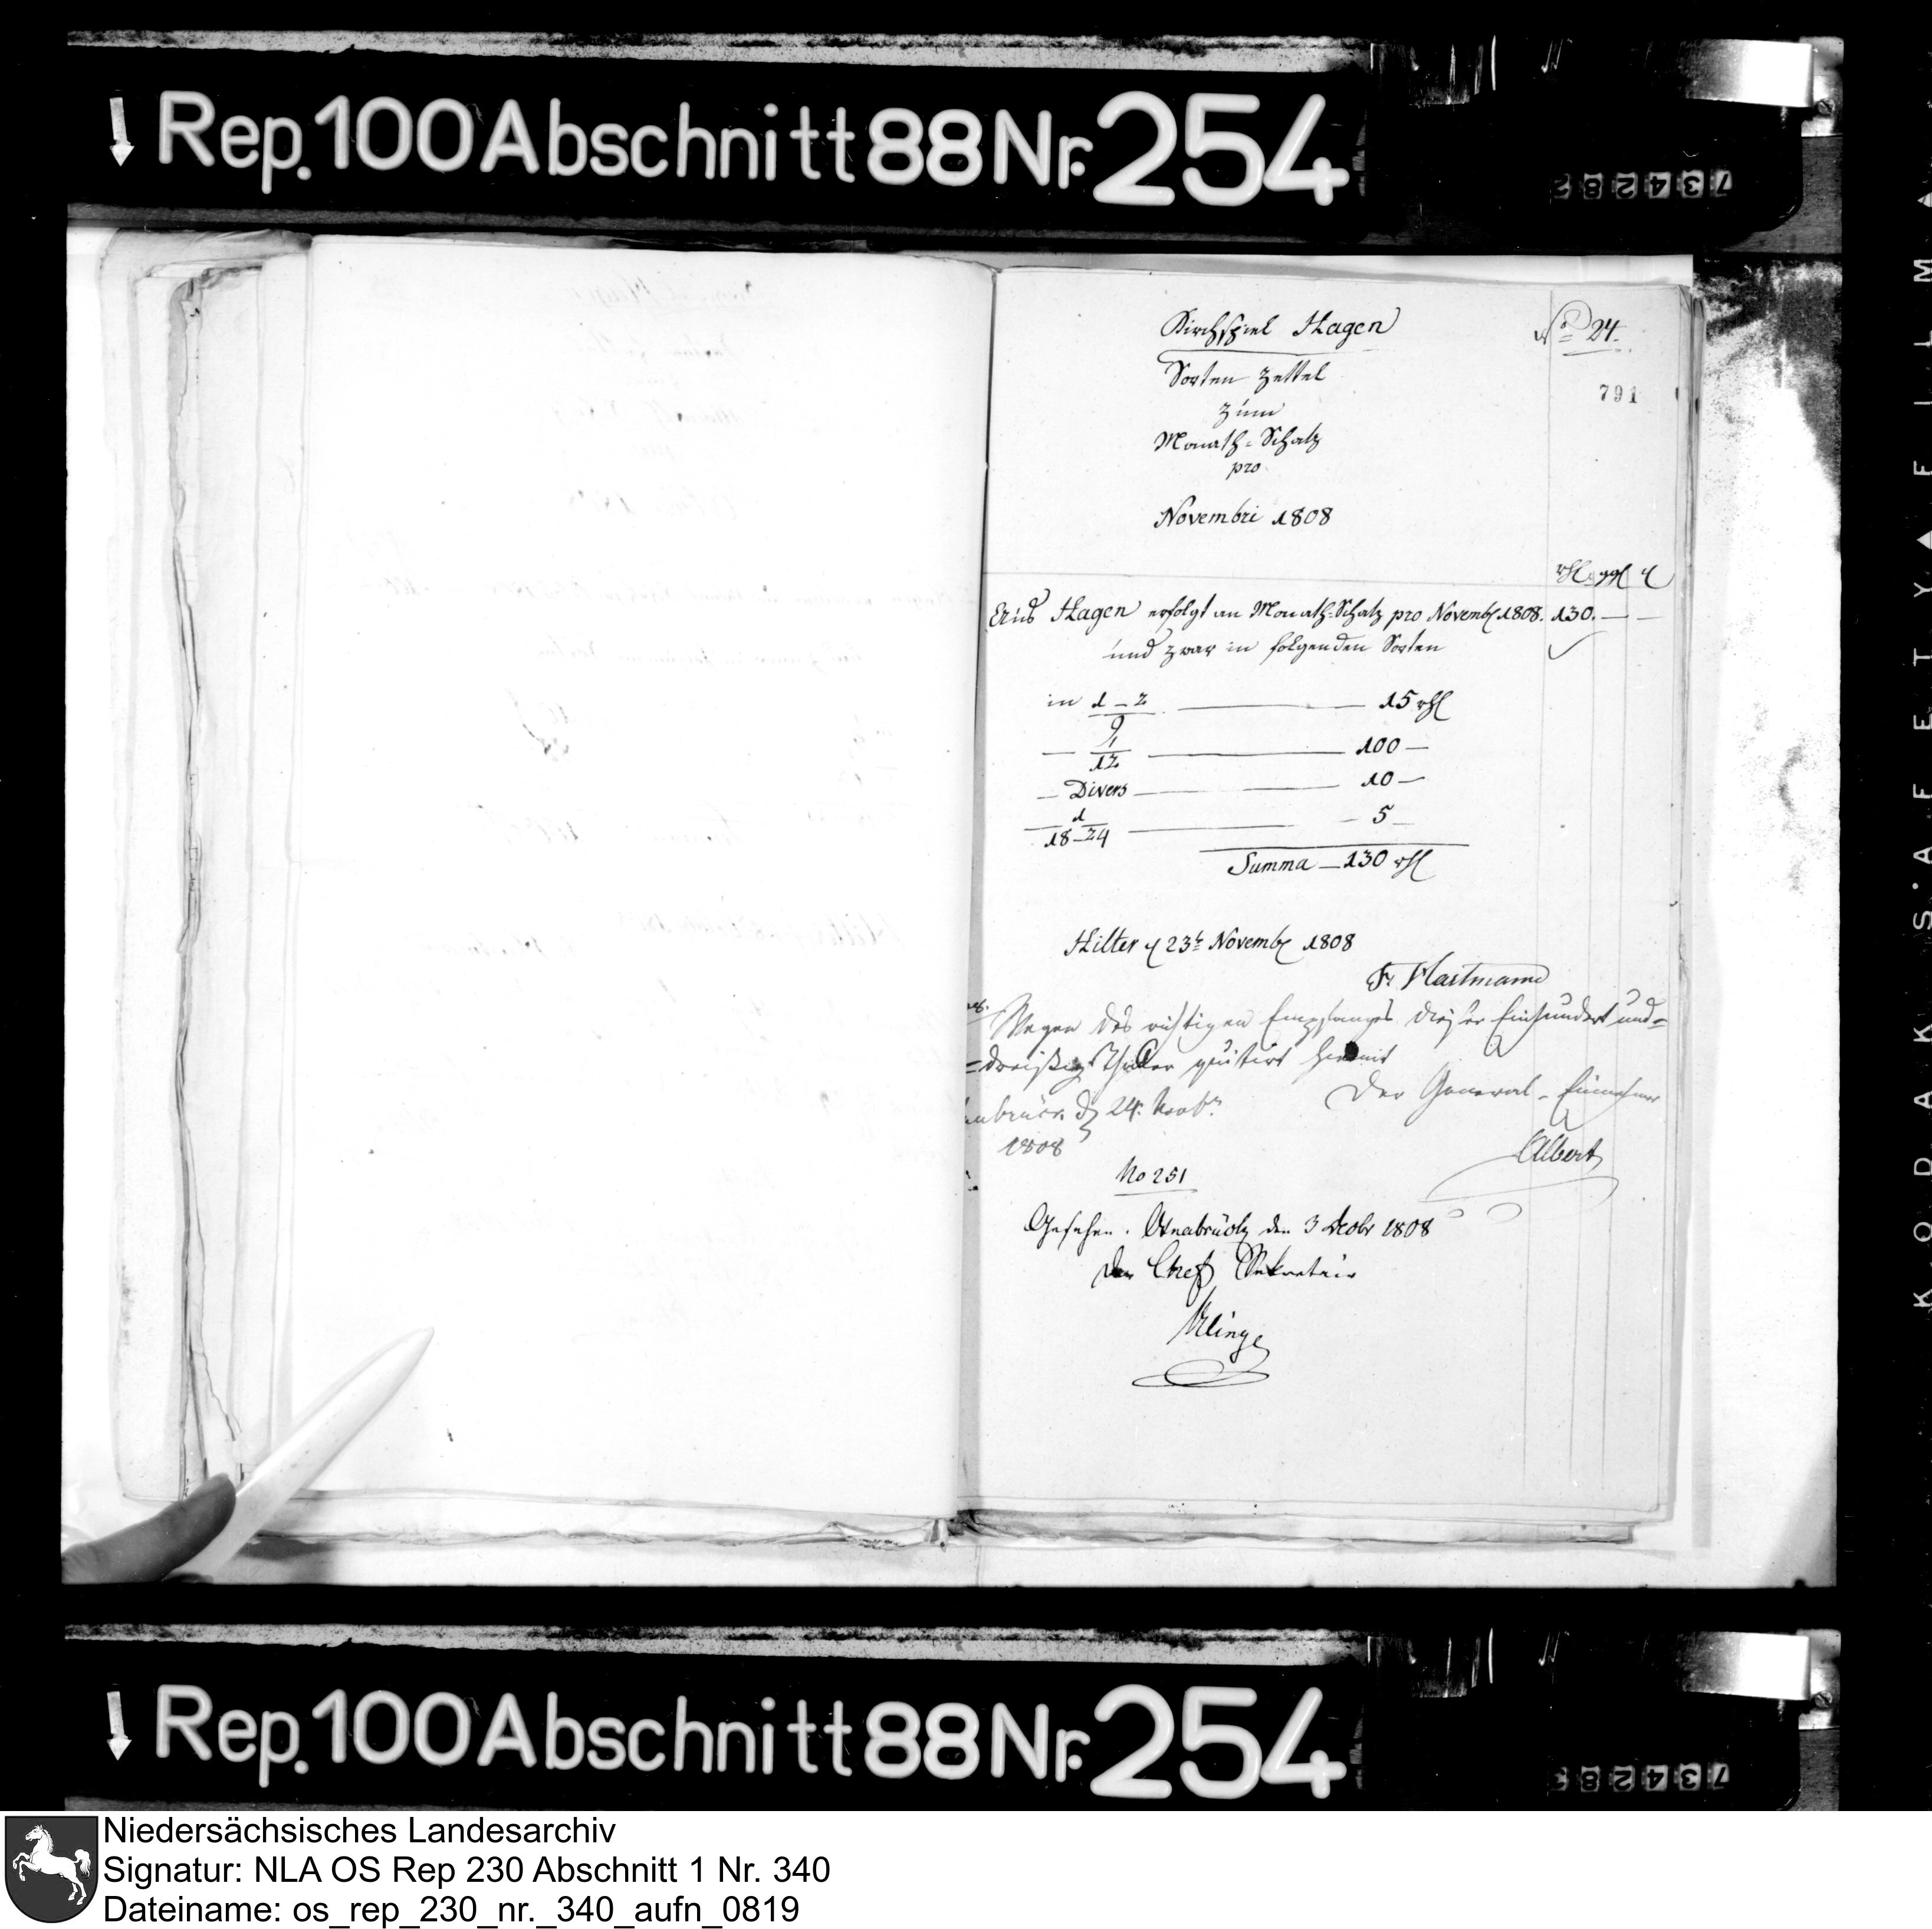 Rep. 100 Abschnitt 88 Nr. 254
Kirchspiel Hagen
No 24.
Sorten Zettel
791
zum
Monath-Schatz
pro
Novembri 1808
rthl ggl d
Aus Hagen erfolgt an Monath-Schatz pro Novemb 1808. 130. — —
und zwar in folgenden Sorten
in 1 – 2 — 15 rthl
— 1/12 — 100 —
— Divers — 10 —
1
18–24 — 5 —
Summa — 130 rthl
Hilter d 23t Novemb 1808
Fr Hartmann
Wegen des richtigen Empfanges dieser Einhundert und=
=dreißig Thaler quitirt hiemit
Der General-Einnehmer
d 24. Novbr
1808
Albert
No 251
Gesehen. Osnabrück den 3 Decbr 1808
Der Chef Sekretair
Klinge
KODAK SAFETY FILM
Rep. 100 Abschnitt 88 Nr. 254
Niedersächsisches Landesarchiv
Signatur: NLA OS Rep 230 Abschnitt 1 Nr. 340
Dateiname: os_rep_230_nr._340_aufn_0819